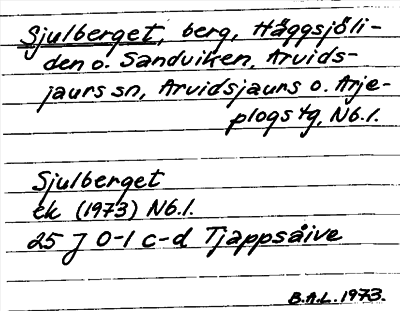 Sjulberget, berg, Häggsjöli-
den o. Sandviken, Arvids-
jaurs sn, Arvidsjaurs o. Arje-
plogs tg, Nb.l.
Sjulberget
ek (1973) Nb.l.
25 J 0-1 c-d Tjappsåive
B.A.L. 1973.